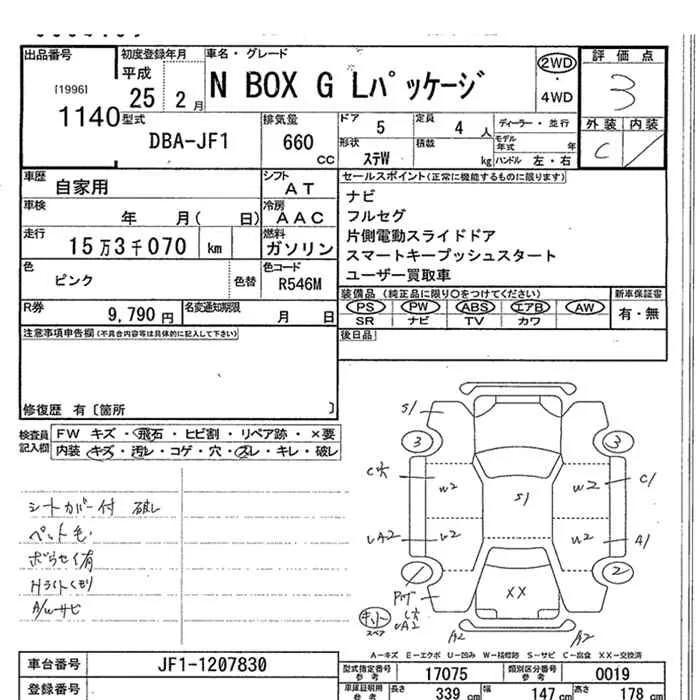 出品番号
[1996]
1140
初度登録年月
平成
25 2 月
車名・グレード
N BOX G Lパッケージ
2WD
・
4WD
評価点
3
外装 内装
C
型式
DBA-JF1
排気量
660
cc
ドア 5
定員 4 人
ディーラー・並行
モデル
年式 年
形状 ステW
積載 kg
ハンドル 左・右
車歴
自家用
シフト
AT
セールスポイント(正常に機能するものに限ります)
ナビ
フルセグ
片側電動スライドドア
スマートキープッシュスタート
ユーザー買取車
車検
年 月( 日)
冷房
AAC
走行
15万3千070 km
燃料
ガソリン
色
ピンク
色替
色コード
R546M
R券
9,790 円
名変通知期限
月 日
装備品(純正品に限り○をつけてください)
新車保証書
PS PW ABS エアB AW
SR ナビ TV カワ
有・無
注意事項申告欄(不具合内容等は具体的に記入して下さい)
後日品
修復歴 有〔箇所 〕
検査員
記入欄
FW キズ・飛石・ヒビ割・リペア跡・×要
内装 キズ・汚レ・コゲ・穴・スレ・キレ・破レ
シートカバー付 破レ
ペット毛
Hライトくもり
A/Wサビ
S1
3
3
W2
W2
C1
S1
A2
W2
W2
A1
2
XX
スペア
A2
A2
A-キズ E-エクボ U-凹み W-補修跡 S-サビ C-腐食 XX-交換済
車台番号
JF1-1207830
型式指定番号
参考
17075
類別区分番号
参考
0019
登録番号
車庫証明用
参考
長さ 339 cm
幅 147 cm
高さ 178 cm